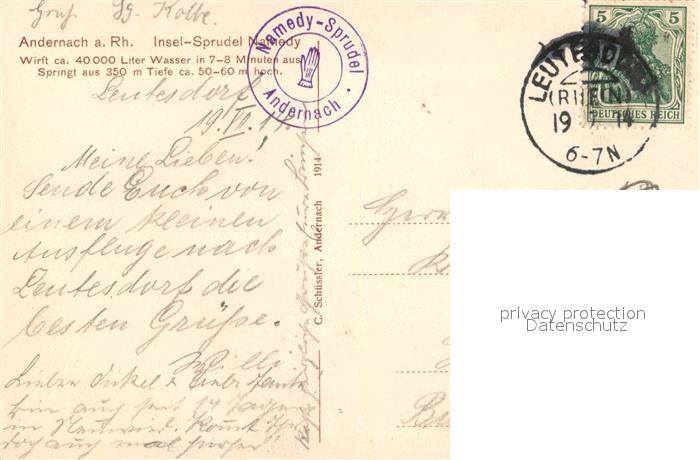 Gruß Kolbe
Andernach a. Rh. Insel-Sprudel Namedy
Wirft ca. 40000 Liter Wasser in 7–8 Minuten aus
Springt aus 350 m Tiefe ca. 50–60 m hoch.
Namedy-Sprudel
Andernach
LEUTESDORF
(RHEIN)
19 14
6-7N
5 5
DEUTSCHES REICH
Leutesdorf
19.
Meine Lieben!
Sende Euch von
einem kleinen
Ausfluge nach
Leutesdorf die
besten Grüße.
Willi
Lieber Onkel & Liebe Tante
bin auch seit 14 Tagen
in Neuwied. Kommt Ihr
doch auch mal
C. Schüssler, Andernach 1914
Herrn
privacy protection
Datenschutz